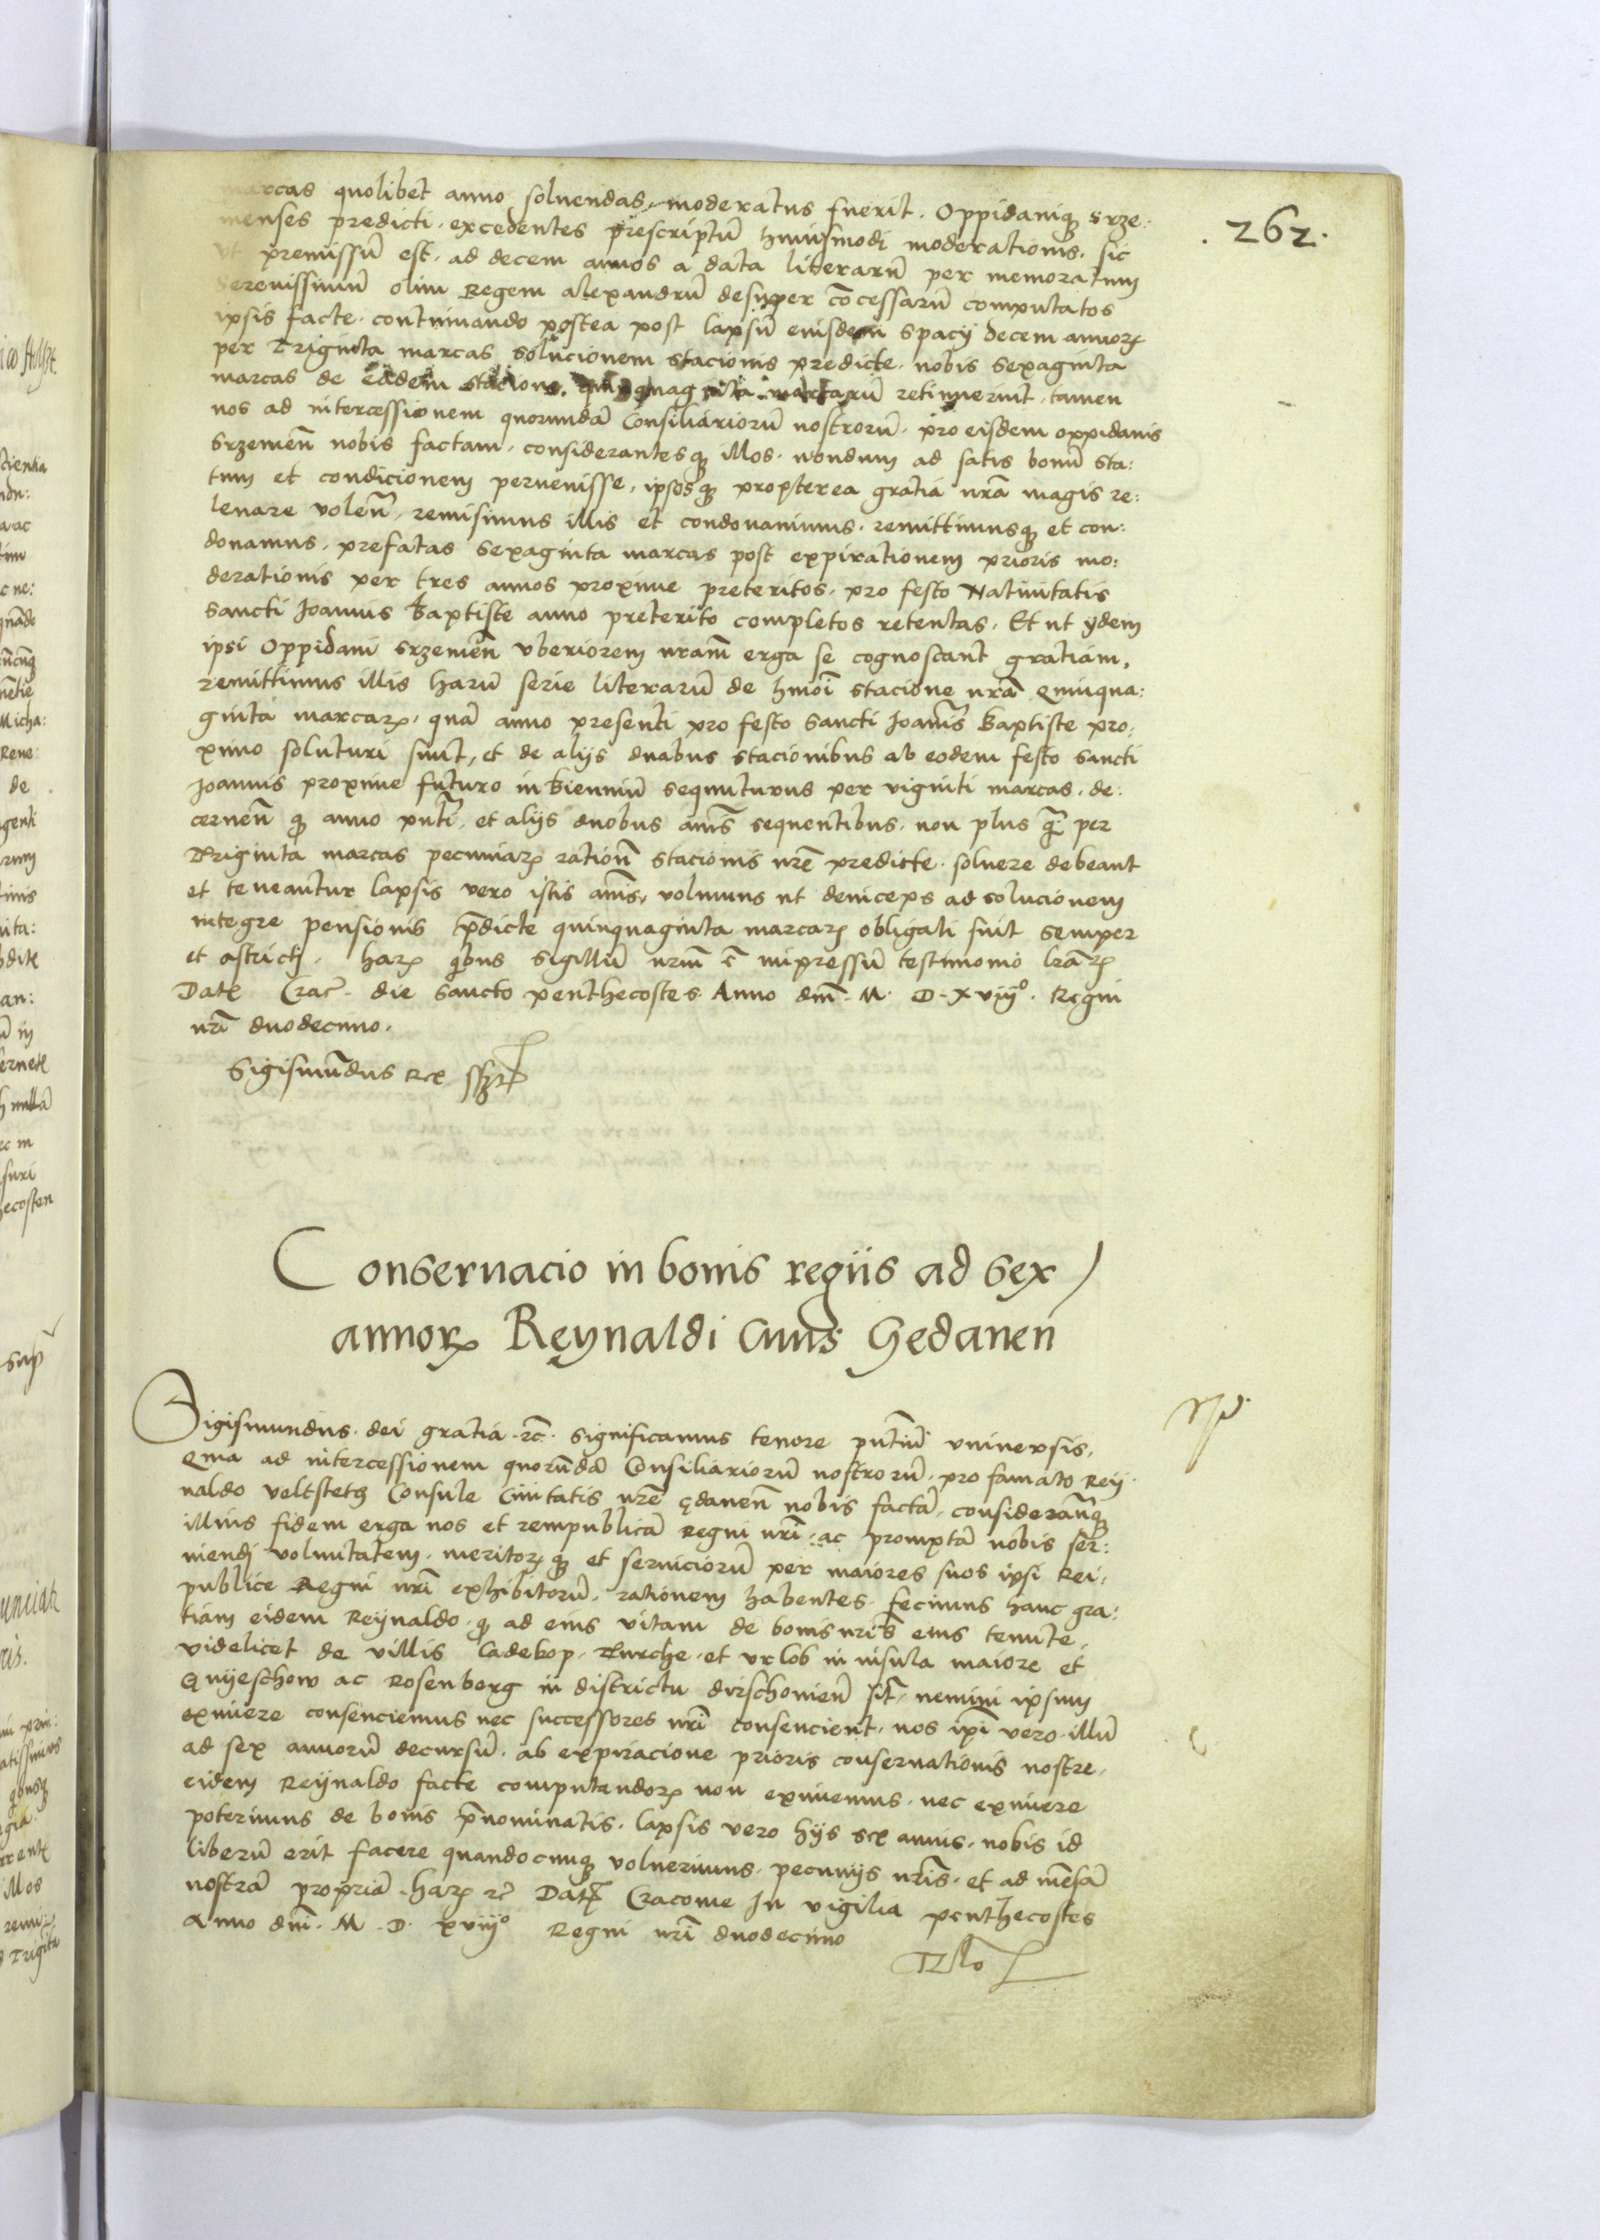 . 262 .
marcas quolibet anno soluendas, moderatus fuerit. Oppidaniq₃ Srze:
menses predicti. excedentes prescriptū huiusmodi moderationis. sic
ut premissū est. ad decem annos a data literarū per memoratum
Serenissimū olim Regem alexandrū desuper cōcessarū computatos
ipsis facte. continuando postea post lapsū eiusdem spacij decem annorꝝ
per Triginta marcas solucionem stacionis predicte. nobis sexaginta
marcas de eadem stacione. quinquaginta marcarū retinuerint, tamen
nos ad intercessionem quorundā Consiliariorū nostrorū. pro eisdem oppidanis
Srzemeñ nobis factam. considerantesq₃ illos. nondum ad satis bonū sta:
tum et condicionem peruenisse, ipsosq₃ propterea gratiā nrā magis re:
leuare voleñ, remisimus illis et condonauimus. remittimusq₃ et con:
donamus. prefatas sexaginta marcas post expirationem prioris mo:
derationis per tres annos proxime preteritos. pro festo Natiuitatis
Sancti Joannis Baptiste anno preterito completos retentas. Et ut ydem
ipsi Oppidani Srzemeñ vberiorem nram̄ erga se cognoscant gratiam,
remittimus illis harū serie literarū de hmōi stacione nrā Quinqua:
ginta marcarꝝ, quā anno presenti pro festo Sancti Joannis Baptiste pro:
ximo soluturi sunt, et de alijs duabus stacionibus ab eodem festo Sancti
Joannis proxime futuro in bienniū sequuturus per viginti marcas. de:
cerneñ q̃ anno pnti, et alijs duobus annis sequentibus. non plus q̃ per
Triginta marcas pecuniarꝝ rationē stacionis nre predicte. soluere debeant
et teneantur lapsis vero istis annis, volumus ut deinceps ad solucionem
integre pensionis p̄dicte quinquaginta marcarꝝ obligati sint semper
et astricti. harꝝ quibus sigillū nrm̄ ē impressū testimonio lrarꝝ
Datꝝ Crac̄. die Sancto penthecostes Anno dnī. M. D. xviijº. Regni
nrī duodecimo.
Sigismūdus Rex sszt
Conseruacio in bonis regiis ad sex
annorꝝ Reynaldi Ciuis Gedaneñ
Sigismundus. dei gratia rc̄. significamus tenore pn̄tiū vniuersis.
Quia ad intercessionem quorūdā Consiliariorū nostrorū. pro famato Rey
naldo veltstetꝫ Consule Ciuitatis nrē gdaneñ nobis factā. considerātesq₃
illius fidem erga nos et rempublicā Regni nrī. ac promptā nobis ser:
uiendj voluntatem. meritorꝝq₃ et seruiciorū per maiores suos ipsi Rei,
publice Regni nrī exhibitorū. rationem habentes fecimus hanc gra:
tiam eidem Reynaldo. q̃ ad eius vitam de bonis nrīs eius tenute,
videlicet de villis Cadekop. Turche. et vrlob in insula maiore et
Quyeschow ac Rosenberg in districtu dirschouieñ sit̄. nemini ipsum
exinere consenciemus nec successores nrī consencient. nos ipī vero illū
ad sex annorū decursū. ab expiracione prioris conseruationis nostre.
eidem Reynaldo facte computandorꝝ non eximemus. nec eximere
poterimus de bonis p̄nominatis. lapsis vero hijs sex annis. nobis id
liberū erit facere quandocunq₃ voluerimus. pecunijs nrīs. et ad mēsā
nostrā propriā. harꝝ rc̄ Datꝝ Cracouie In vigilia penthecostes
Anno dnī. M. D. xviijº Regni nrī duodecimo